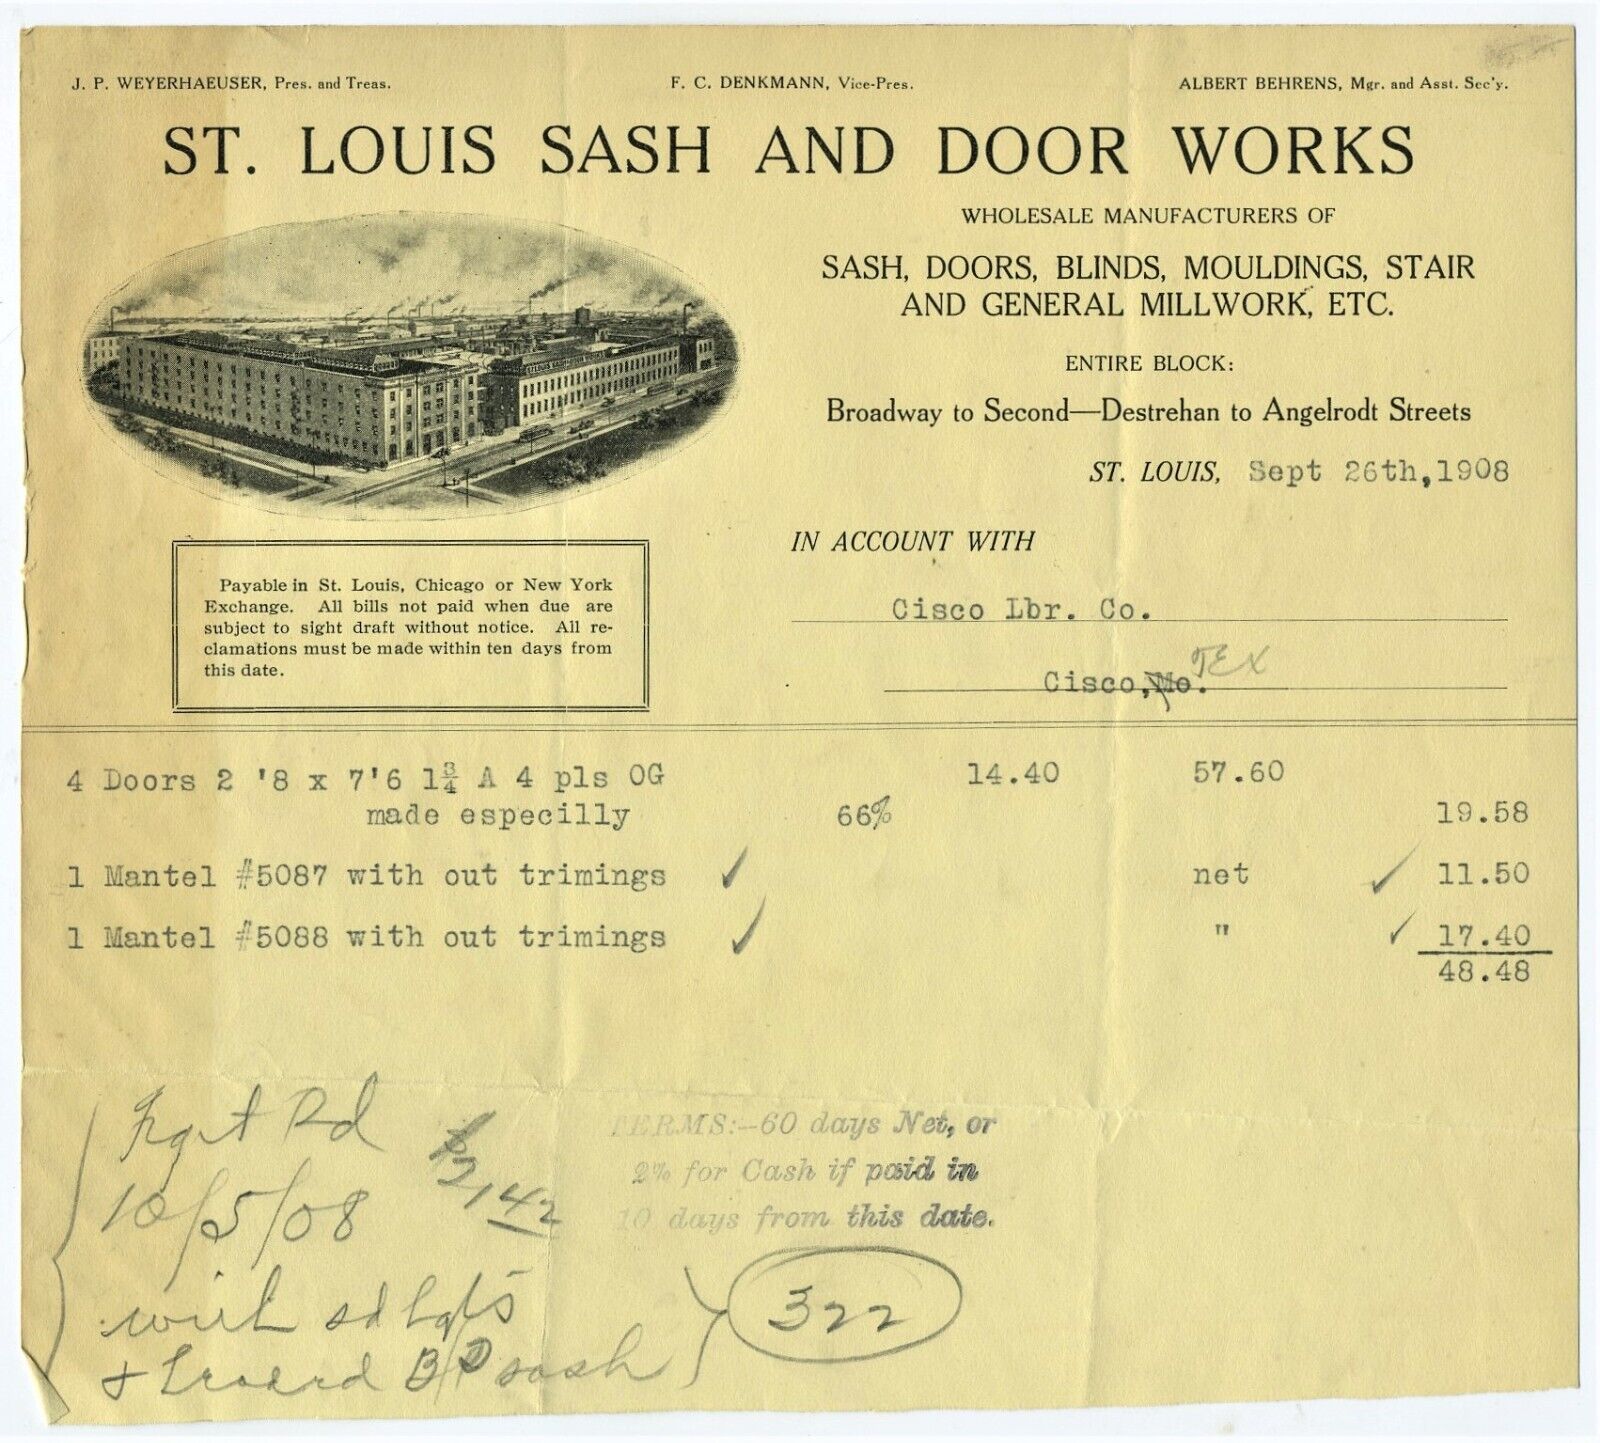 J. P. WEYERHAEUSER, Pres. and Treas. F. C. DENKMANN, Vice-Pres. ALBERT BEHRENS, Mgr. and Asst. Sec'y.
ST. LOUIS SASH AND DOOR WORKS
WHOLESALE MANUFACTURERS OF
SASH, DOORS, BLINDS, MOULDINGS, STAIR
AND GENERAL MILLWORK, ETC.
ENTIRE BLOCK:
Broadway to Second—Destrehan to Angelrodt Streets
ST. LOUIS, Sept 26th,1908
IN ACCOUNT WITH
Payable in St. Louis, Chicago or New York
Exchange. All bills not paid when due are
subject to sight draft without notice. All re-
clamations must be made within ten days from
this date.
Cisco Lbr. Co.
Cisco, Mo. TEX
4 Doors 2 '8 x 7'6 1¾ A 4 pls OG 14.40 57.60
made especilly 66% 19.58
1 Mantel #5087 with out trimings ✓ net ✓ 11.50
1 Mantel #5088 with out trimings ✓ " ✓ 17.40
48.48
Frgt Rd
$2,42
10/5/08
with sd
& B/D sash
TERMS:—60 days Net, or
2% for Cash if paid in
10 days from this date.
322